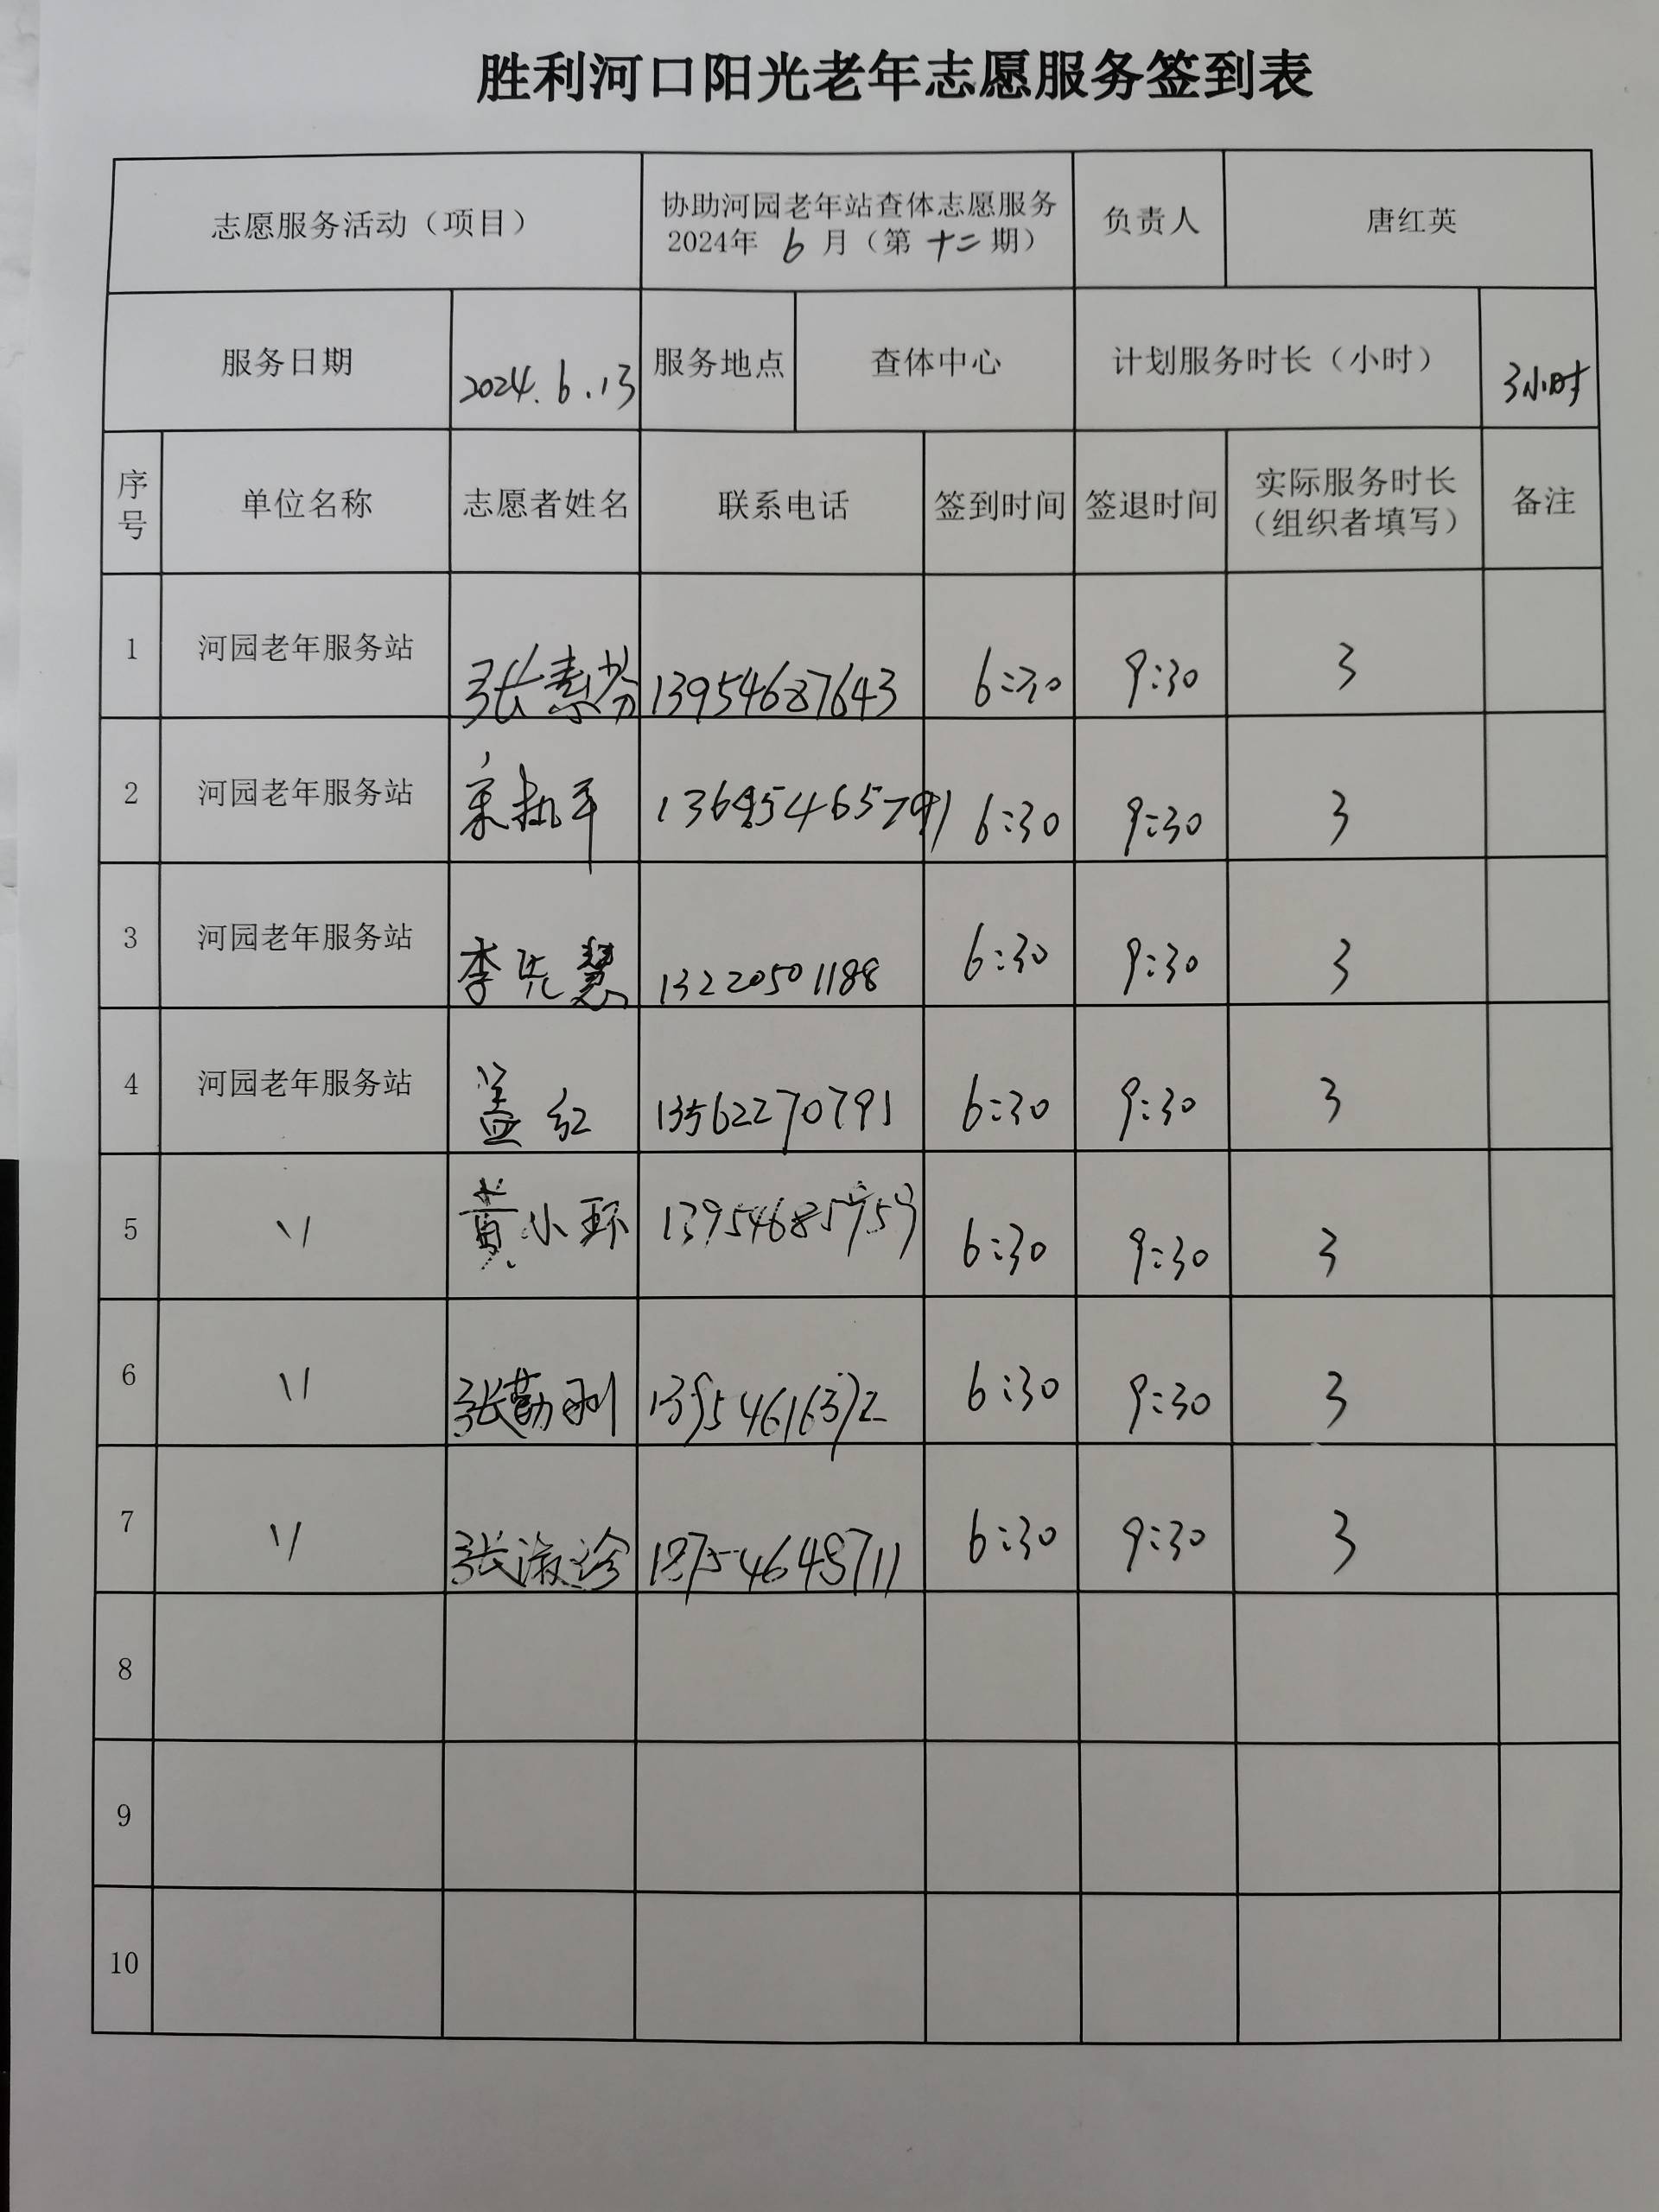 胜利河口阳光老年志愿服务签到表
志愿服务活动（项目）
协助河园老年站查体志愿服务
2024年 6 月（第 十二 期）
负责人
唐红英
服务日期
2024.6.13
服务地点
查体中心
计划服务时长（小时）
3小时
序号
单位名称
志愿者姓名
联系电话
签到时间
签退时间
实际服务时长
（组织者填写）
备注
1 河园老年服务站 张素芬 13954687643 6:30 9:30 3
2 河园老年服务站 6:30 9:30 3
3 河园老年服务站 李先慧 13220501188 6:30 9:30 3
4 河园老年服务站 盖红 13562270791 6:30 9:30 3
5 〃 黄小环 6:30 9:30 3
6 〃 张勤利 13954616372 6:30 9:30 3
7 〃 张淑珍 18754648711 6:30 9:30 3
8
9
10